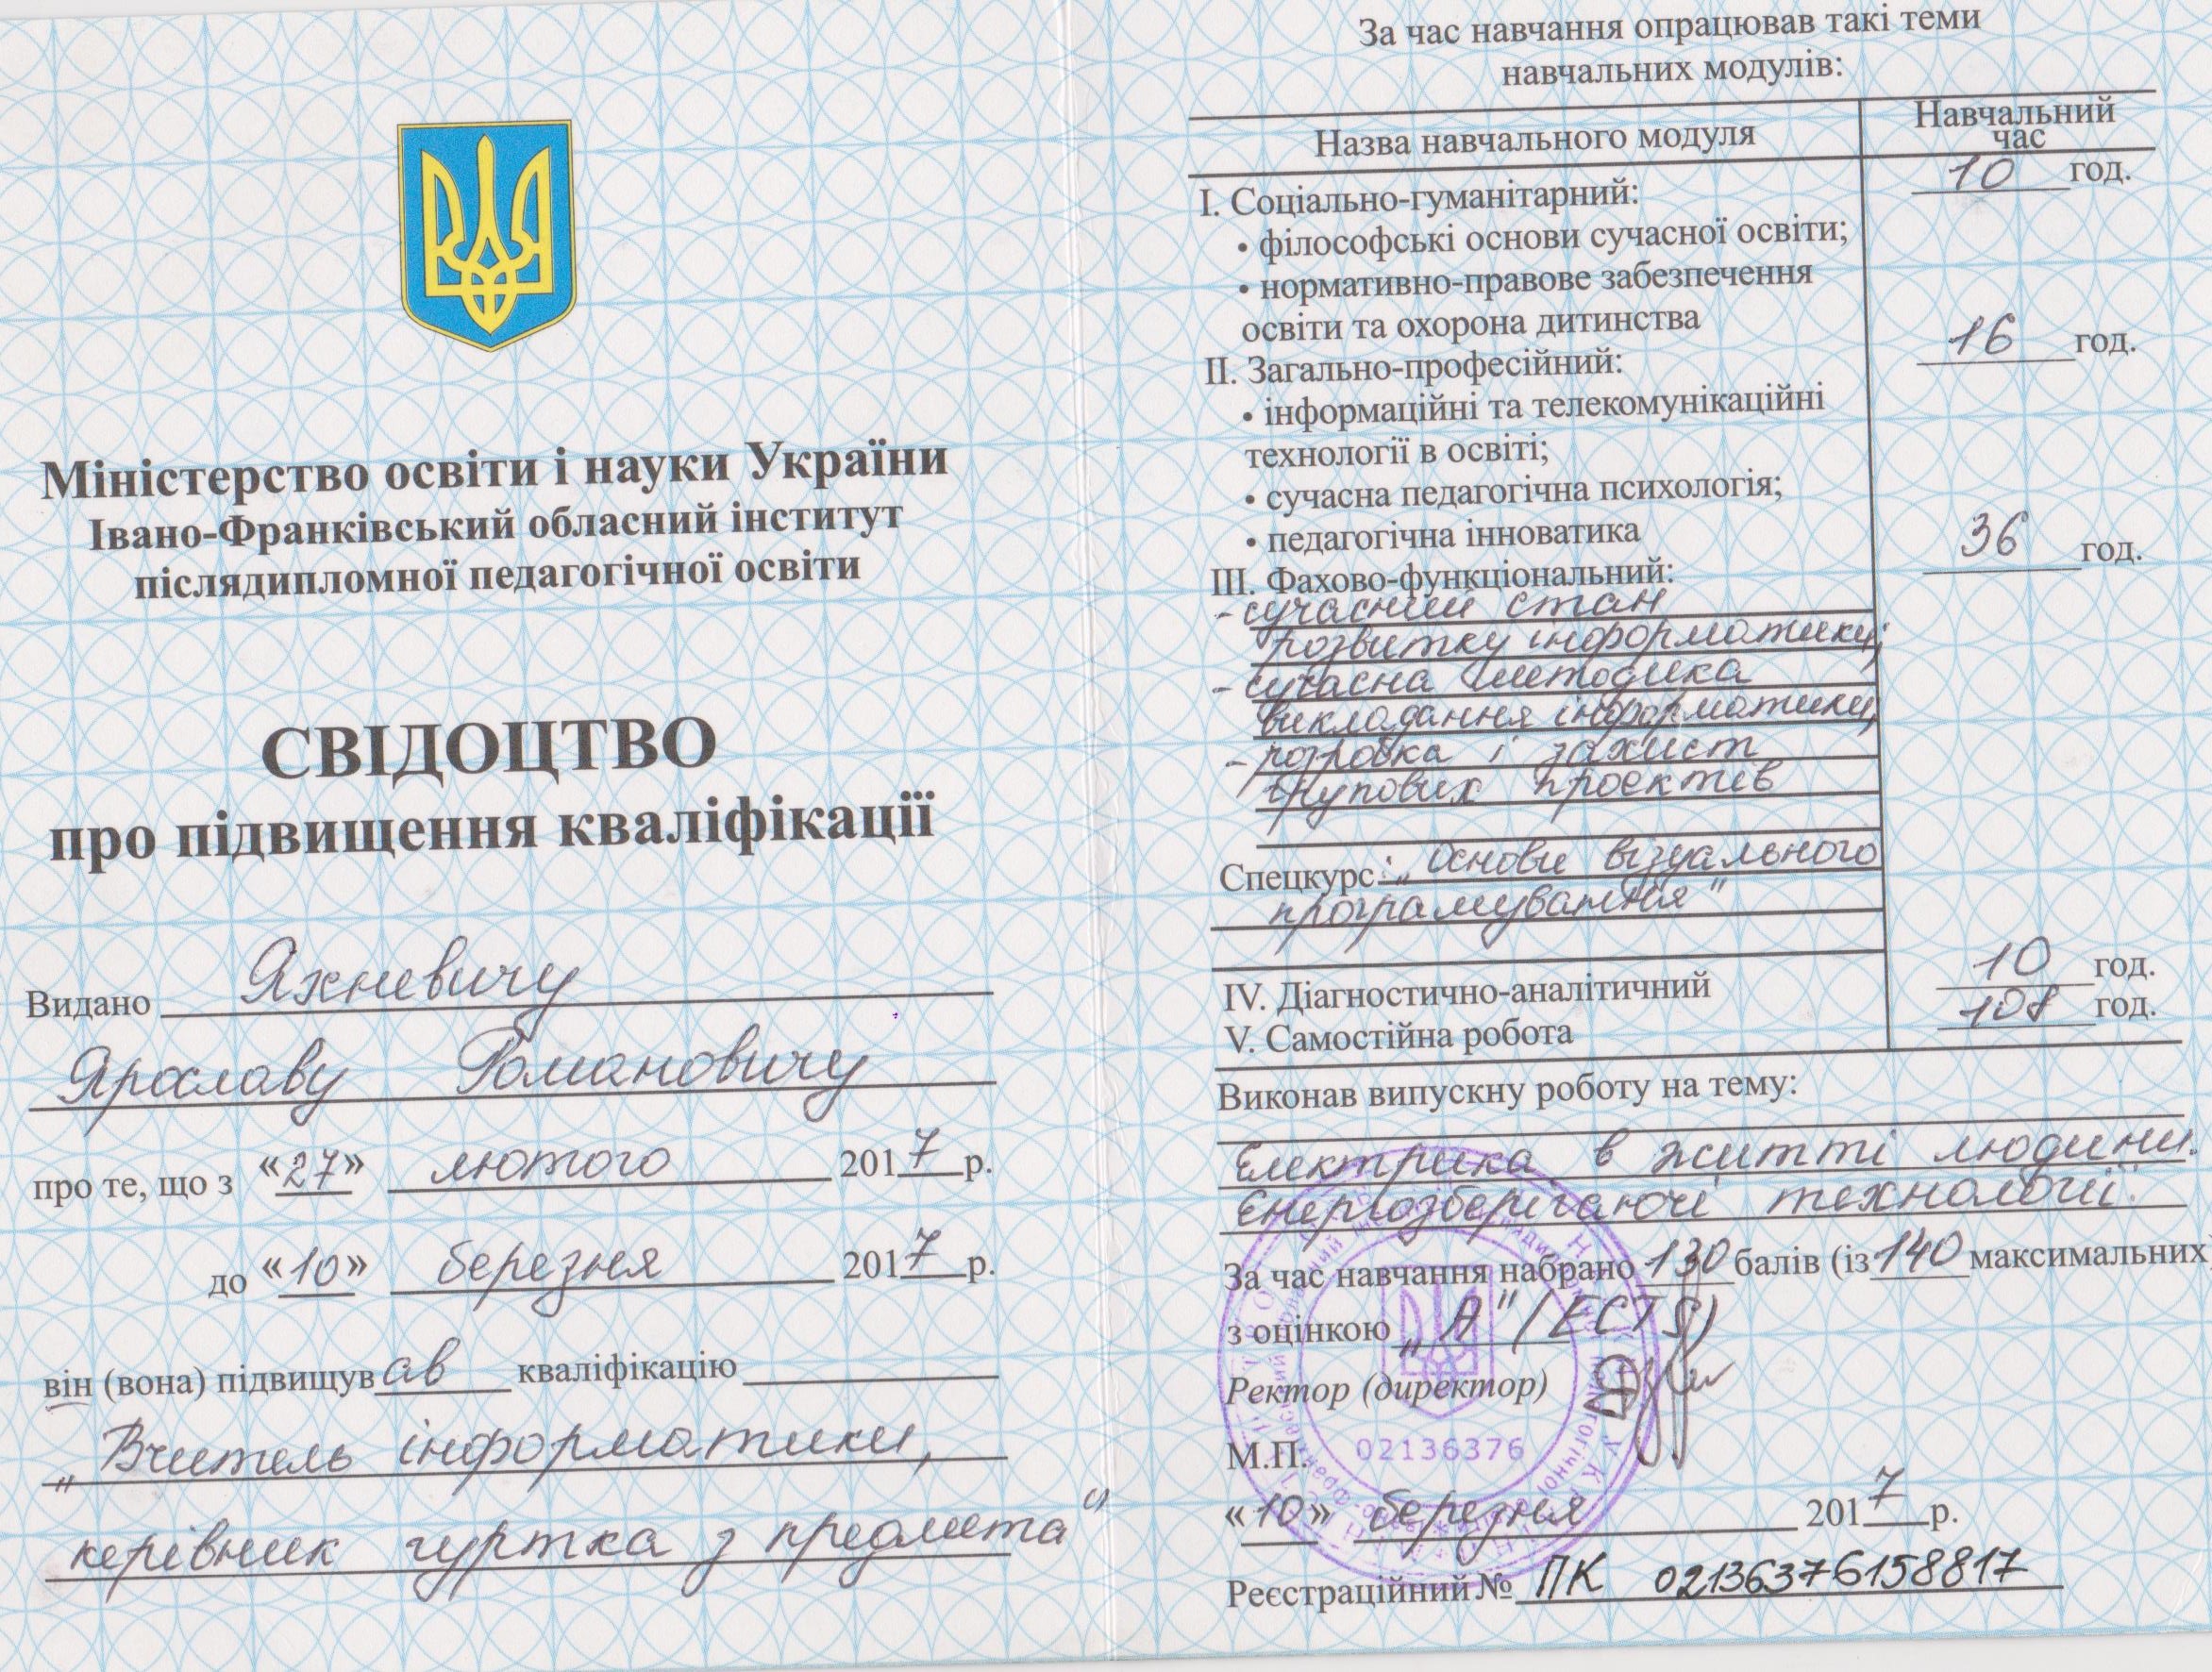 Міністерство освіти і науки України
Івано-Франківський обласний інститут
післядипломної педагогічної освіти
СВІДОЦТВО
про підвищення кваліфікації
Видано Яхневичу
Ярославу Романовичу
про те, що з «27» лютого 2017 р.
до «10» березня 2017 р.
він (вона) підвищував кваліфікацію
„Вчитель інформатики,
керівник гуртка з предмета“
За час навчання опрацював такі теми
навчальних модулів:
Назва навчального модуля
Навчальний
час
І. Соціально-гуманітарний: 10 год.
• філософські основи сучасної освіти;
• нормативно-правове забезпечення
освіти та охорона дитинства
ІІ. Загально-професійний: 16 год.
• інформаційні та телекомунікаційні
технології в освіті;
• сучасна педагогічна психологія;
• педагогічна інноватика
ІІІ. Фахово-функціональний: 36 год.
- сучасний стан
розвитку інформатики;
- сучасна методика
викладання інформатики
- розробка і захист
групових проектів
Спецкурс: „Основи візуального
програмування"
IV. Діагностично-аналітичний 10 год.
V. Самостійна робота 108 год.
Виконав випускну роботу на тему:
Електрика в житті людини.
Енергозберігаючі технології.
За час навчання набрано 130 балів (із 140 максимальних)
з оцінкою „А" (ECTS)
Ректор (директор)
М.П.
02136376
«10» березня 2017 р.
Реєстраційний № ПК 02136376158817